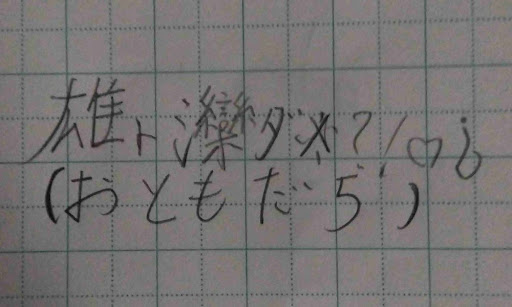 雄ト灤ダ
(おともだち)